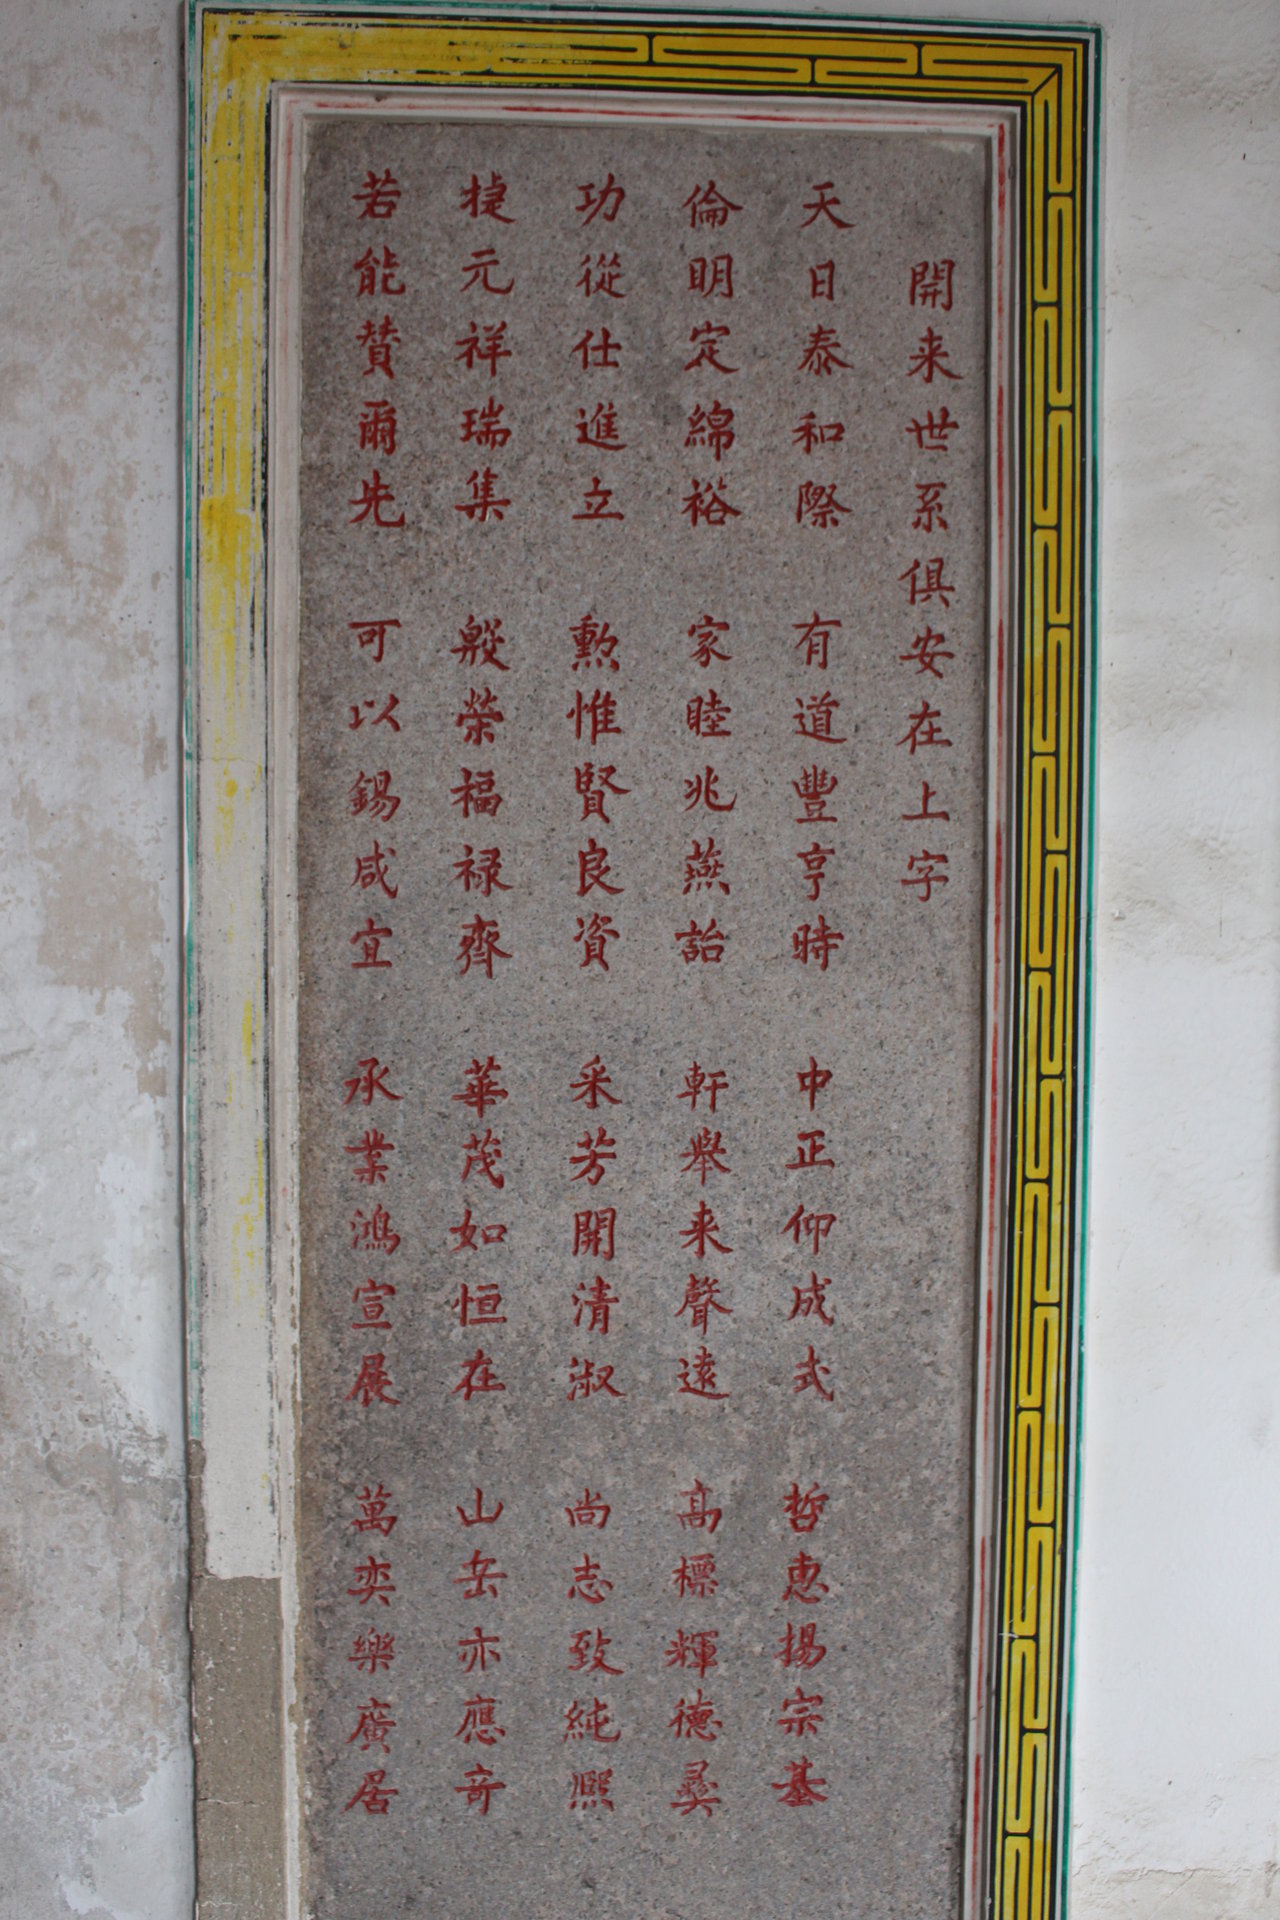 開来世系俱安在上字
天日泰和際 有道豐亨時 中正仰成式 哲惠揚宗基
倫明定綿裕 家睦兆燕詒 軒舉来聲遠 高標輝德彝
功從仕進立 勲惟賢良資 采芳開清淑 尚志致純熙
捷元祥瑞集 毅榮福禄齊 華茂如恒在 山岳亦應奇
若能賛爾先 可以錫咸宜 承業鴻宣展 萬奕樂廣居